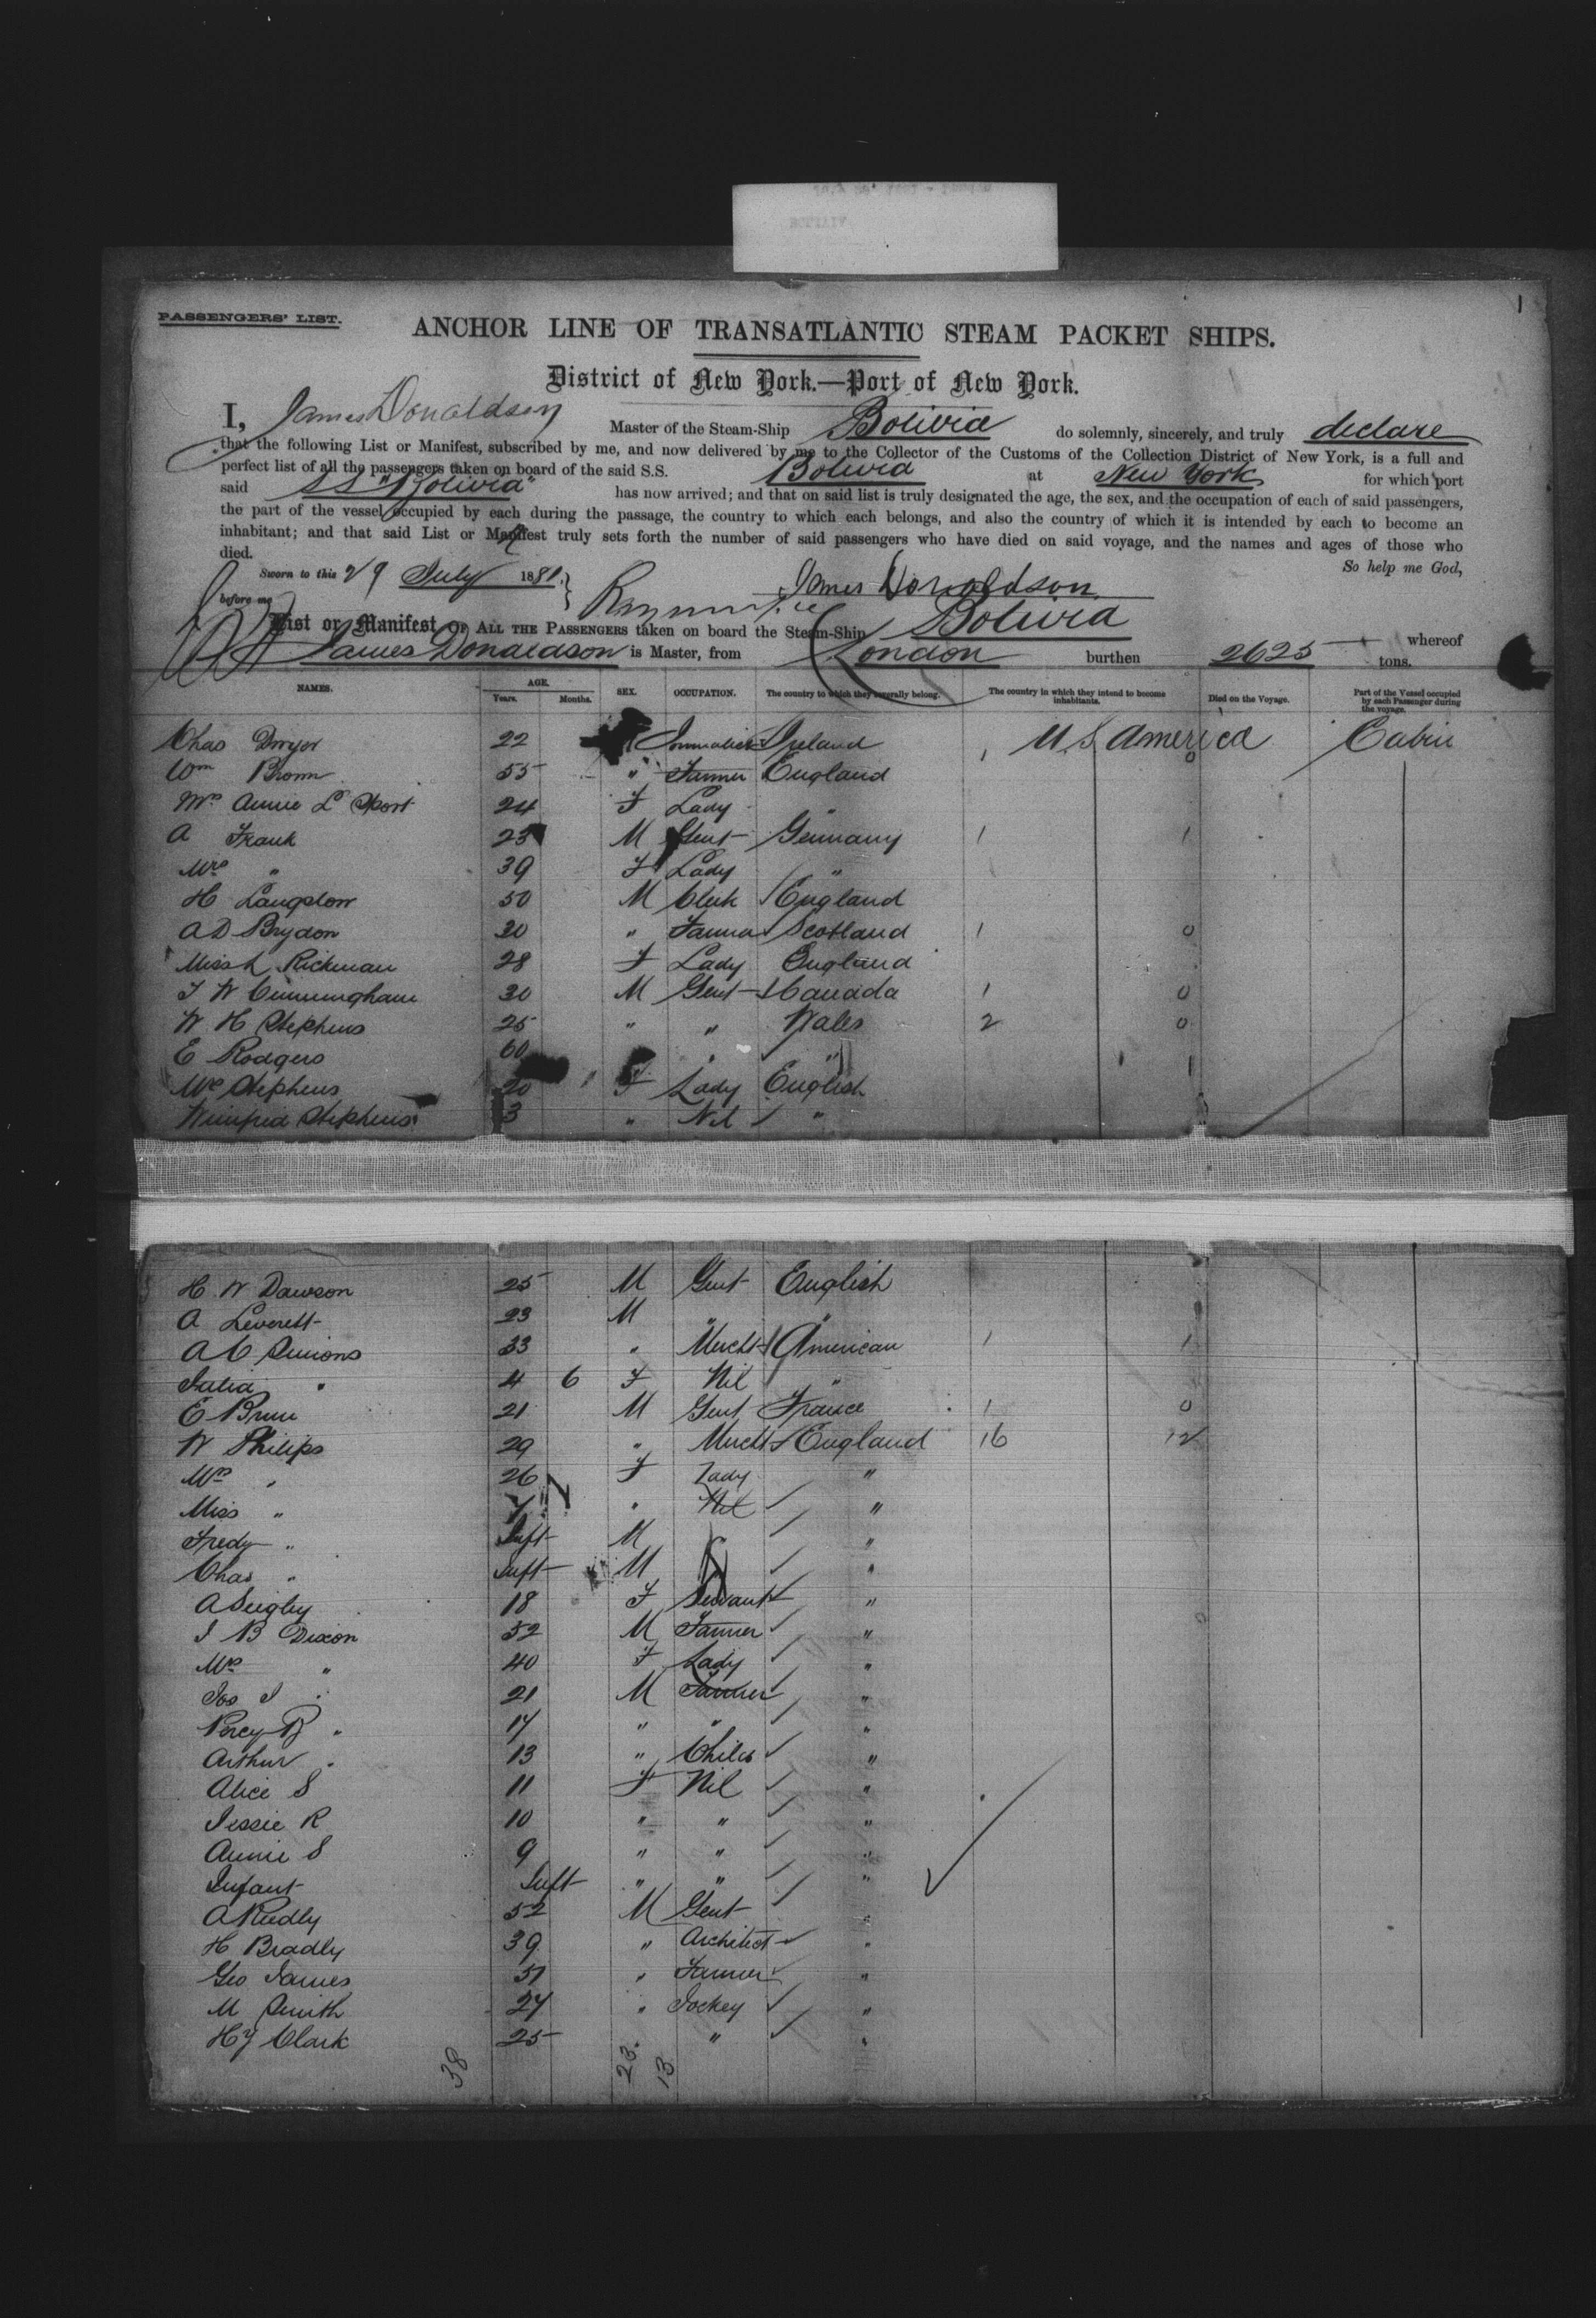 1
PASSENGERS' LIST.
ANCHOR LINE OF TRANSATLANTIC STEAM PACKET SHIPS.
District of New York.—Port of New York.
I, James Donaldson Master of the Steam-Ship Bolivia do solemnly, sincerely, and truly declare
that the following List or Manifest, subscribed by me, and now delivered by me to the Collector of the Customs of the Collection District of New York, is a full and
perfect list of all the passengers taken on board of the said S.S. Bolivia at New York for which port
said SS "Bolivia" has now arrived; and that on said list is truly designated the age, the sex, and the occupation of each of said passengers,
the part of the vessel occupied by each during the passage, the country to which each belongs, and also the country of which it is intended by each to become an
inhabitant; and that said List or Manifest truly sets forth the number of said passengers who have died on said voyage, and the names and ages of those who
died. So help me God,
Sworn to this 29 July 1881. James Donaldson
before me
List or Manifest OF ALL THE PASSENGERS taken on board the Steam-Ship Bolivia whereof
James Donaldson is Master, from London burthen 2625 tons.
NAMES. AGE. Years. Months. SEX. OCCUPATION. The country to which they severally belong. The country in which they intend to become inhabitants. Died on the Voyage. Part of the Vessel occupied by each Passenger during the voyage.
Chas Dwyer 22 Journalist Ireland U S America Cabin
Wm Brown 55 " Farmer England
Mrs Annie L Short 24 F Lady "
A Frank 25 M Gent Germany 1 1
Mrs " 39 F Lady "
H Langdon 50 M Clerk England
A D Brydon 30 " Farmer Scotland 1 0
Miss L Rickman 28 F Lady England
J W Cunningham 30 M Gent Canada 1 0
W H Stephens 25 " " Wales 2 0
E Rodgers 60 " "
Mrs Stephens 20 F Lady English
Winifred Stephens 3 " Nil "
H W Dawson 25 M Gent English
A Leverett 23 M " "
A C Simons 33 " Mercht American 1 1
Julia " 4 6 F Nil "
E Brun 21 M Gent France 1 0
W Philips 29 " Mercht England 16 12
Mrs " 26 F Lady "
Miss " 7 " Nil "
Fredy " Inft M "
Chas " Inft M "
A Seigby 18 F Servant "
J B Dixon 52 M Farmer "
Mrs " 40 F Lady "
Jos J " 21 M Farmer "
Percy B " 17 " " "
Arthur " 13 " Child "
Alice S 11 F Nil "
Jessie R 10 " " "
Annie S 9 " " "
Infant Inft " " "
A Reedly 52 M Gent "
H Bradly 39 " Architect "
Geo James 51 " Farmer "
M Smith 27 " Jockey "
Hy Clark 25 " "
38 23 13